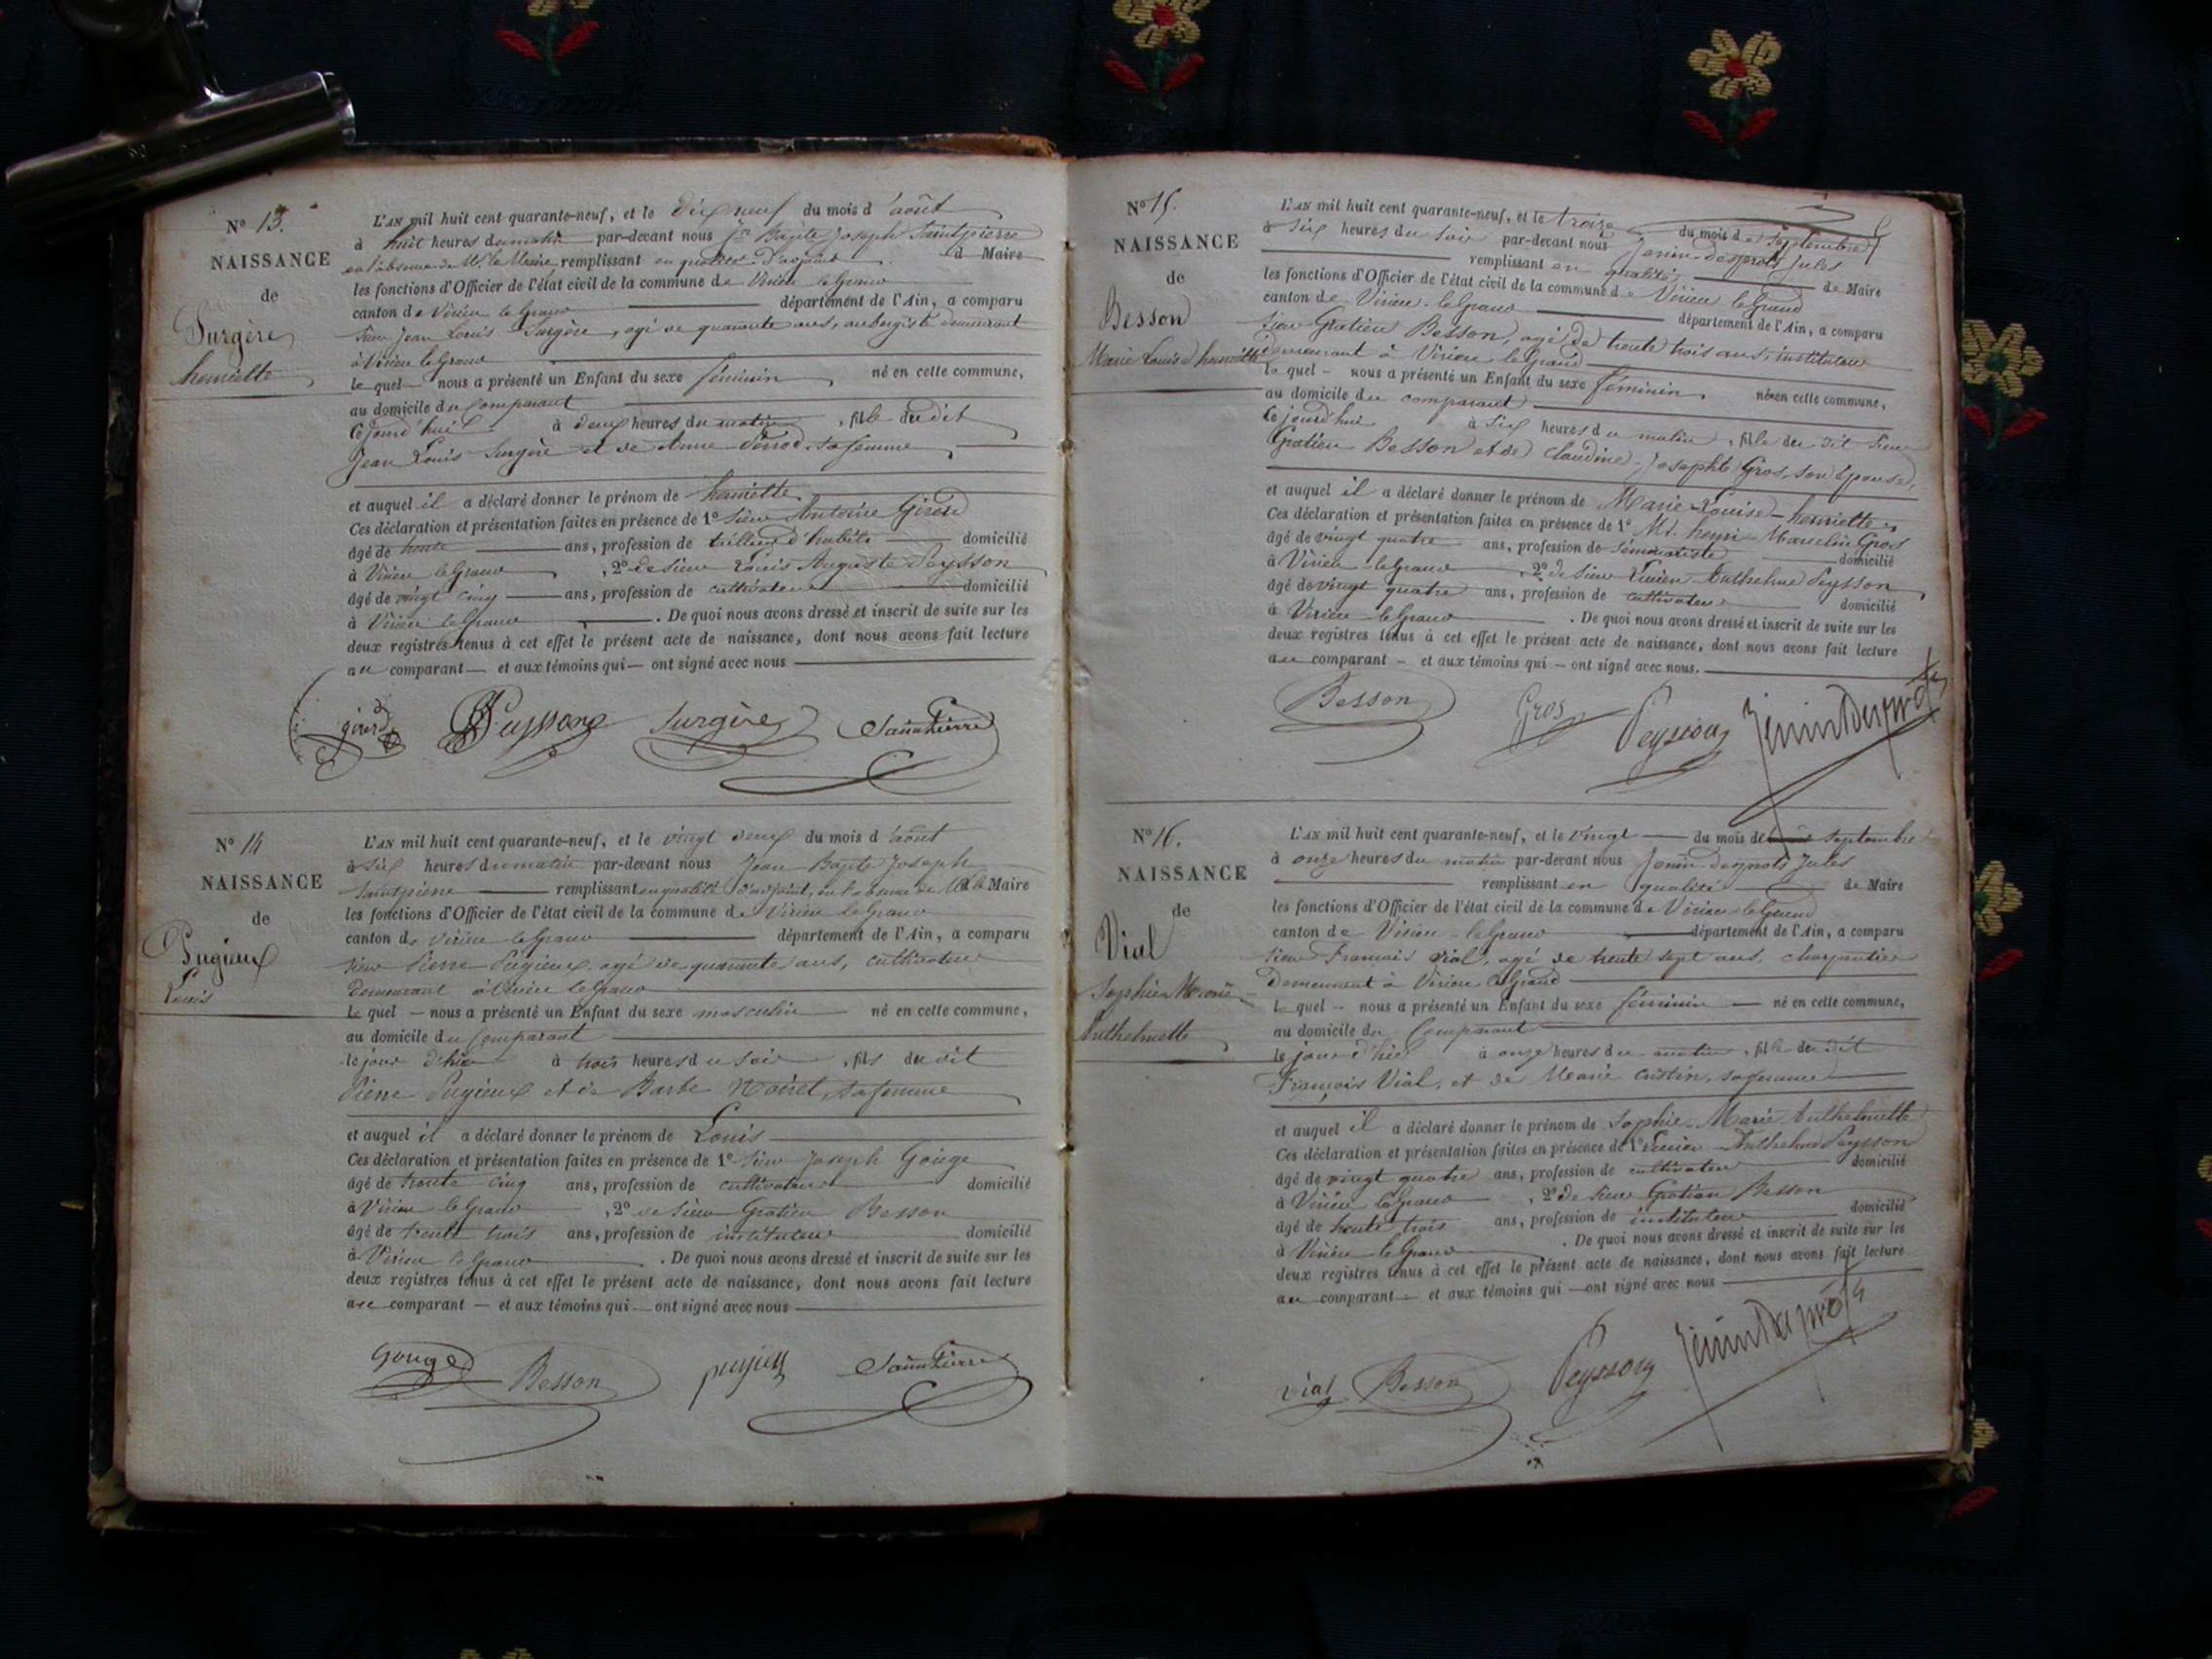 N° 13.
NAISSANCE
de
Surgère
henriette
L'AN mil huit cent quarante-neuf, et le dix neuf du mois d'août
à huit heures du matin par-devant nous Jn Bapte Joseph Saintpierre
en l'absence de Mr. le Maire, remplissant en qualité d'adjoint d Maire
les fonctions d'Officier de l'état civil de la commune de Virieu le Grand
canton de Virieu le Grand département de l'Ain, a comparu
sieur Jean Louis Surgère, agé de quarante ans, aubergiste demeurant
à Virieu le Grand
le quel nous a présenté un Enfant du sexe féminin né en cette commune,
au domicile du Comparant
Cejourd'hui à deux heures du matin, fille du dit
Jean Louis Surgère et de Anne sa femme
et auquel il a déclaré donner le prénom de henriette
Ces déclaration et présentation faites en présence de 1° sieur Antoine Girod
âgé de trente ans, profession de d'habits domicilié
à Virieu le Grand, 2° de sieur Louis Auguste Peysson
âgé de vingt cinq ans, profession de cultivateur domicilié
à Virieu le Grand. De quoi nous avons dressé et inscrit de suite sur les
deux registres tenus à cet effet le présent acte de naissance, dont nous avons fait lecture
au comparant et aux témoins qui ont signé avec nous
girod Peysson Surgère Saintpierre
N° 14
NAISSANCE
de
Pugieux
Louis
L'AN mil huit cent quarante-neuf, et le vingt deux du mois d'août
à six heures du matin par-devant nous Jean Bapte Joseph
Saintpierre remplissant en qualité d'adjoint, en l'absence de Mr le Maire
les fonctions d'Officier de l'état civil de la commune de Virieu le Grand
canton de Virieu le Grand département de l'Ain, a comparu
sieur Pierre Pugieux agé de quarante ans, cultivateur
demeurant à Virieu le Grand
le quel nous a présenté un Enfant du sexe masculin né en cette commune,
au domicile du Comparant
le jour d'hier à trois heures du soir, fils du dit
Pierre Pugieux et de Barbe sa femme
et auquel il a déclaré donner le prénom de Louis
Ces déclaration et présentation faites en présence de 1° sieur Joseph Gouge
âgé de trente cinq ans, profession de cultivateur domicilié
à Virieu le Grand, 2° de sieur Gratien Besson
âgé de trente trois ans, profession de instituteur domicilié
à Virieu le Grand. De quoi nous avons dressé et inscrit de suite sur les
deux registres tenus à cet effet le présent acte de naissance, dont nous avons fait lecture
au comparant et aux témoins qui ont signé avec nous
Gouge Besson pugieu Saintpierre
N° 15.
NAISSANCE
de
Besson
Marie Louise henriette
L'AN mil huit cent quarante-neuf, et le treize du mois de septembre
à six heures du soir par-devant nous Jenin-desprots Jules
remplissant en qualité de Maire
les fonctions d'Officier de l'état civil de la commune de Virieu le Grand
canton de Virieu-le Grand département de l'Ain, a comparu
sieur Gratien Besson, agé de trente trois ans, instituteur
demeurant à Virieu le Grand
le quel - nous a présenté un Enfant du sexe féminin né en cette commune,
au domicile du comparant
Cejourd'hui à six heures du matin, fille du dit sieur
Gratien Besson et de Claudine-Josephte Gros, son épouse,
et auquel il a déclaré donner le prénom de Marie-Louise-henriette.
Ces déclaration et présentation faites en présence de 1° Mr. henri Marcelin Gros
âgé de vingt quatre ans, profession de séminariste domicilié
à Virieu le Grand, 2° de sieur Lucien Anthelme Peysson
âgé de vingt quatre ans, profession de cultivateur domicilié
à Virieu le Grand. De quoi nous avons dressé et inscrit de suite sur les
deux registres tenus à cet effet le présent acte de naissance, dont nous avons fait lecture
au comparant - et aux témoins qui - ont signé avec nous.
Besson Gros Peysson Jenindesprots
N° 16.
NAISSANCE
de
Vial
Sophie Marie
Anthelmette
L'AN mil huit cent quarante-neuf, et le vingt du mois de septembre
à onze heures du matin par-devant nous Jenin-desprots Jules
remplissant en qualité de Maire
les fonctions d'Officier de l'état civil de la commune de Virieu le Grand
canton de Virieu-le Grand département de l'Ain, a comparu
sieur François Vial, agé de trente sept ans, charpentier
Demeurant à Virieu le Grand
le quel - nous a présenté un Enfant du sexe féminin né en cette commune,
au domicile du Comparant
le jour d'hier à onze heures du matin, fille du dit
François Vial, et de Marie sa femme
et auquel il a déclaré donner le prénom de Sophie-Marie Anthelmette
Ces déclaration et présentation faites en présence de 1° Lucien-Anthelme Peysson
âgé de vingt quatre ans, profession de cultivateur domicilié
à Virieu le Grand, 2° de sieur Gratien Besson
âgé de trente trois ans, profession de instituteur domicilié
à Virieu le Grand. De quoi nous avons dressé et inscrit de suite sur les
deux registres tenus à cet effet le présent acte de naissance, dont nous avons fait lecture
au comparant et aux témoins qui ont signé avec nous
Vial Besson Peysson Jenindesprots